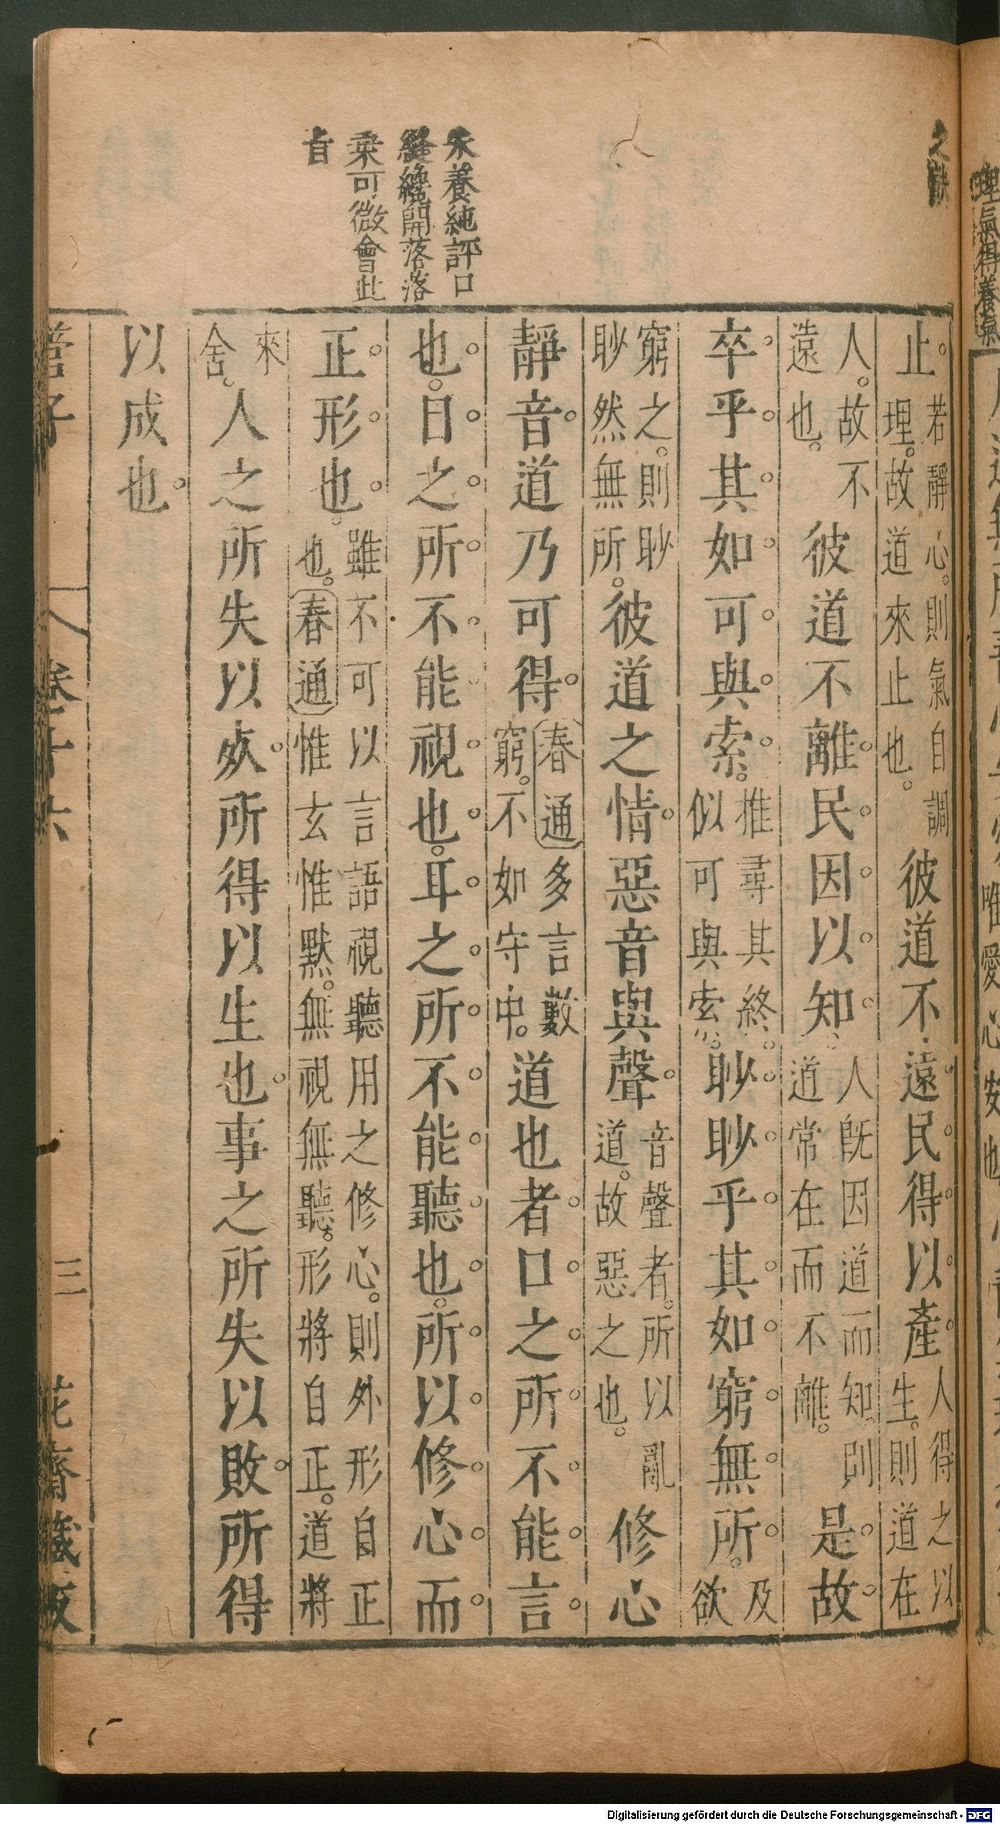 之訣
朱養純評口
縫纔開落落
乘可微會此
旨
止。若靜心。則氣自調理。故道來止也。彼道不遠民得以產人得之以生。則道在
人。故不遠也。彼道不離民因以知人旣因道而知則道常在而不離。是故
卒乎其如可與索。推尋其終。似可與索。眇眇乎其如窮無所。及欲
窮之。則眇眇然無所。彼道之情惡音與聲音聲者。所以亂道。故惡之也。修心
靜音道乃可得春通多言數窮。不如守中。道也者口之所不能言
也。目之所不能視也。耳之所不能聽也。所以修心而
正形也。雖不可以言語視聽用之修心。則外形自正也。春通惟玄惟默。無視無聽。形將自正。道將
來舍。人之所失以死所得以生也事之所失以敗所得
以成也
管子 卷十六 三 花齋藏板
Digitalisierung gefördert durch die Deutsche Forschungsgemeinschaft - DFG